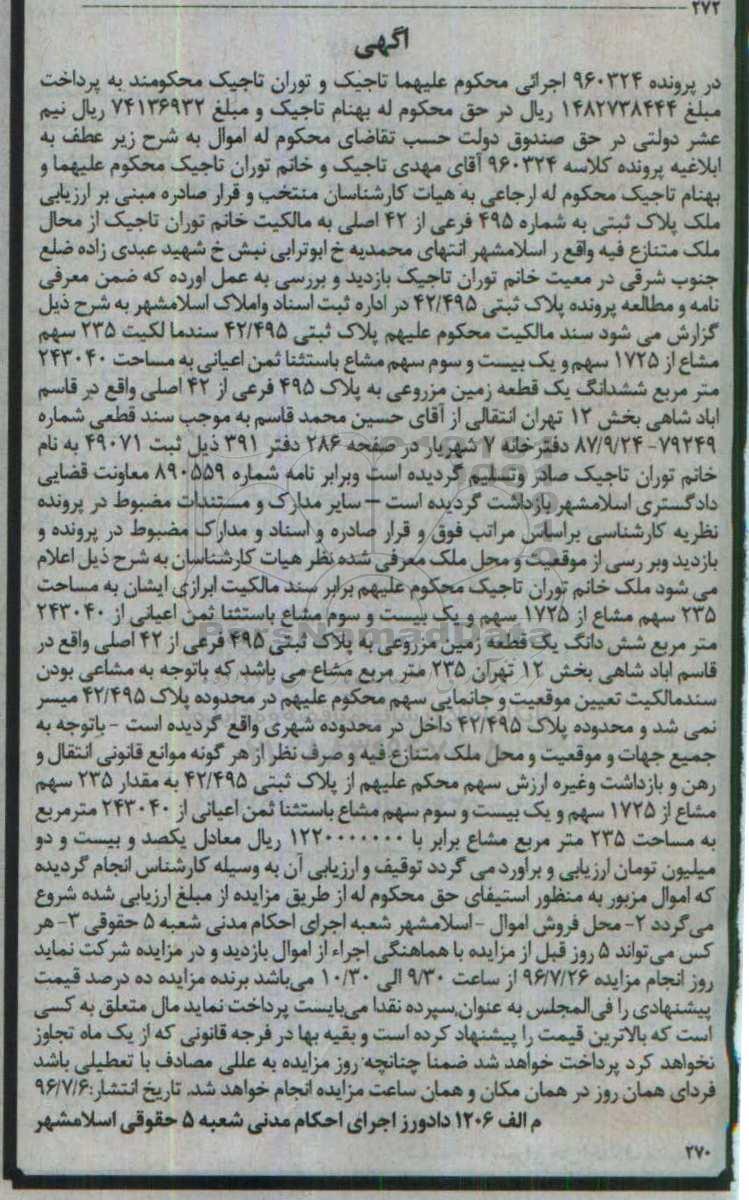 ۲۷۲
آگهی
در پرونده ۹۶۰۳۲۴ اجرائی محکوم علیهما تاجیک و توران تاجیک محکومند به پرداخت
مبلغ ۱۴۸۲۷۳۸۴۴۴ ریال در حق محکوم له بهنام تاجیک و مبلغ ۷۴۱۳۶۹۳۲ ریال نیم
عشر دولتی در حق صندوق دولت حسب تقاضای محکوم له اموال به شرح زیر عطف به
ابلاغیه پرونده کلاسه ۹۶۰۳۲۴ آقای مهدی تاجیک و خانم توران تاجیک محکوم علیهما و
بهنام تاجیک محکوم له ارجاعی به هیات کارشناسان منتخب و قرار صادره مبنی بر ارزیابی
ملک پلاک ثبتی به شماره ۴۹۵ فرعی از ۴۲ اصلی به مالکیت خانم توران تاجیک از محال
ملک متنازع فیه واقع ر اسلامشهر انتهای محمدیه خ ابوترابی نبش خ شهید عبدی زاده ضلع
جنوب شرقی در معیت خانم توران تاجیک بازدید و بررسی به عمل اورده که ضمن معرفی
نامه و مطالعه پرونده پلاک ثبتی ۴۲/۴۹۵ در اداره ثبت اسناد واملاک اسلامشهر به شرح ذیل
گزارش می شود سند مالکیت محکوم علیهم پلاک ثبتی ۴۲/۴۹۵ سندما لکیت ۲۳۵ سهم
مشاع از ۱۷۲۵ سهم و یک بیست و سوم سهم مشاع باستثنا ثمن اعیانی به مساحت ۲۴۳۰۴۰
متر مربع ششدانگ یک قطعه زمین مزروعی به پلاک ۴۹۵ فرعی از ۴۲ اصلی واقع در قاسم
اباد شاهی بخش ۱۲ تهران انتقالی از آقای حسین محمد قاسم به موجب سند قطعی شماره
۷۹۲۴۹- ۸۷/۹/۲۴ دفترخانه ۷ شهریار در صفحه ۲۸۶ دفتر ۳۹۱ ذیل ثبت ۴۹۰۷۱ به نام
خانم توران تاجیک صادر وتسلیم گردیده است وبرابر نامه شماره ۸۹۰۵۵۹ معاونت قضایی
دادگستری اسلامشهر بازداشت گردیده است – سایر مدارک و مستندات مضبوط در پرونده
نظریه کارشناسی براساس مراتب فوق و قرار صادره و اسناد و مدارک مضبوط در پرونده و
بازدید وبر رسی از موقعیت و محل ملک معرفی شده نظر هیات کارشناسان به شرح ذیل اعلام
می شود ملک خانم توران تاجیک محکوم علیهم برابر سند مالکیت ابرازی ایشان به مساحت
۲۳۵ سهم مشاع از ۱۷۲۵ سهم و یک بیست و سوم مشاع باستثنا ثمن اعیانی از ۲۴۳۰۴۰
متر مربع شش دانگ یک قطعه زمین مزروعی به پلاک ثبتی ۴۹۵ فرعی از ۴۲ اصلی واقع در
قاسم اباد شاهی بخش ۱۲ تهران ۲۳۵ متر مربع مشاع می باشد که باتوجه به مشاعی بودن
سندمالکیت تعیین موقعیت و جانمایی سهم محکوم علیهم در محدوده پلاک ۴۲/۴۹۵ میسر
نمی شد و محدوده پلاک ۴۲/۴۹۵ داخل در محدوده شهری واقع گردیده است - باتوجه به
جمیع جهات و موقعیت و محل ملک متنازع فیه و صرف نظر از هر گونه موانع قانونی انتقال و
رهن و بازداشت وغیره ارزش سهم محکم علیهم از پلاک ثبتی ۴۲/۴۹۵ به مقدار ۲۳۵ سهم
مشاع از ۱۷۲۵ سهم و یک بیست و سوم سهم مشاع باستثنا ثمن اعیانی از ۲۴۳۰۴۰ مترمربع
به مساحت ۲۳۵ متر مربع مشاع برابر با ۱۲۲۰۰۰۰۰۰۰ ریال معادل یکصد و بیست و دو
میلیون تومان ارزیابی و براورد می گردد توقیف و ارزیابی آن به وسیله کارشناس انجام گردیده
که اموال مزبور به منظور استیفای حق محکوم له از طریق مزایده از مبلغ ارزیابی شده شروع
می‌گردد ۲- محل فروش اموال -اسلامشهر شعبه اجرای احکام مدنی شعبه ۵ حقوقی ۳- هر
کس می‌تواند ۵ روز قبل از مزایده با هماهنگی اجراء از اموال بازدید و در مزایده شرکت نماید
روز انجام مزایده ۹۶/۷/۲۶ از ساعت ۹/۳۰ الی ۱۰/۳۰ می‌باشد برنده مزایده ده درصد قیمت
پیشنهادی را فی‌المجلس به عنوان سپرده نقدا می‌بایست پرداخت نماید مال متعلق به کسی
است که بالاترین قیمت را پیشنهاد کرده است و بقیه بها در فرجه قانونی که از یک ماه تجاوز
نخواهد کرد پرداخت خواهد شد ضمنا چنانچه روز مزایده به عللی مصادف با تعطیلی باشد
فردای همان روز در همان مکان و همان ساعت مزایده انجام خواهد شد. تاریخ انتشار:۹۶/۷/۶
م الف ۱۲۰۶ دادورز اجرای احکام مدنی شعبه ۵ حقوقی اسلامشهر
۲۷۰
ParsNamadData